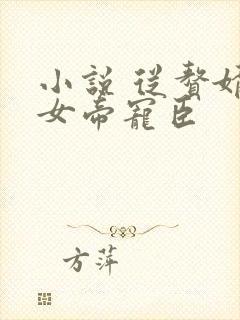 小說 從贅婿
女帝寵臣
方萍